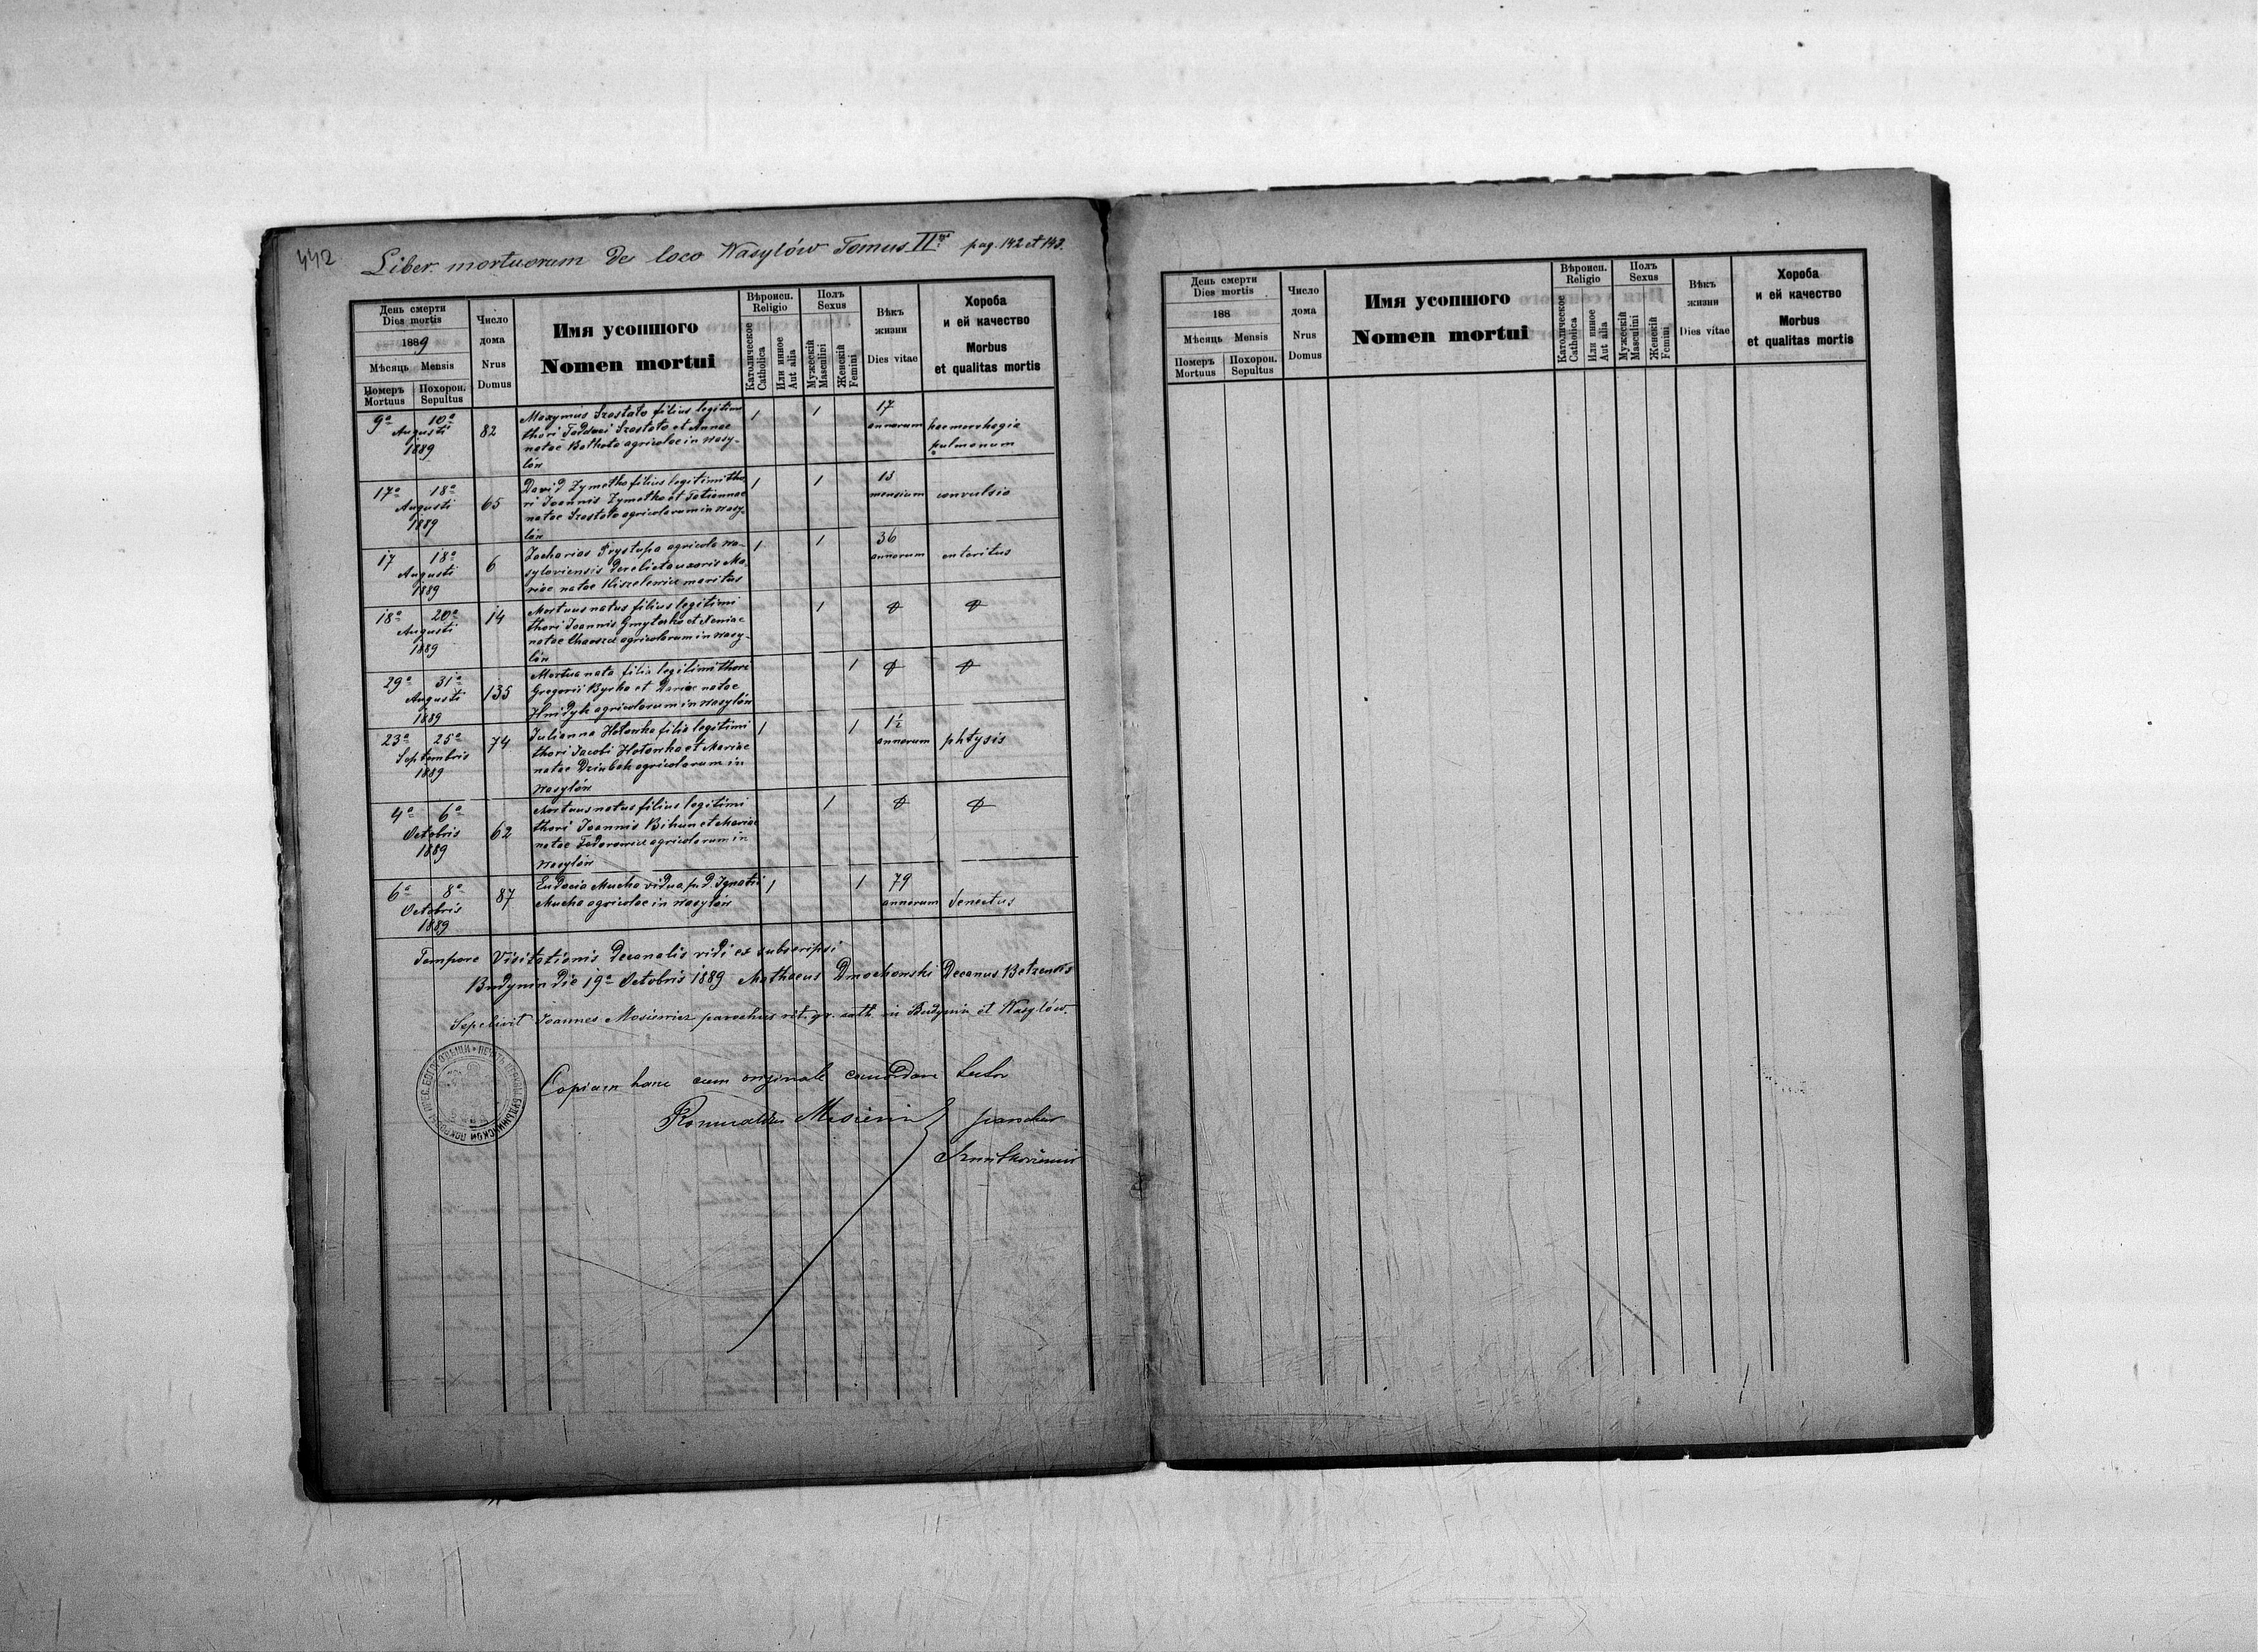 442
Liber mortuorum de loco Wasylów Tomus II pag. 142 et 143.
День смерти
Dies mortis
1889
Мѣсяць Mensis
Померъ Mortuus
Похорон. Sepultus
Число дома
Nrus Domus
Имя усопшого
Nomen mortui
Вѣроисп.
Religio
Католическое
Catholica
Или инное
Aut alia
Полъ
Sexus
Мужескій
Masculini
Женскій
Femini
Вѣкъ жизни
Dies vitae
Хороба
и ей качество
Morbus
et qualitas mortis
9a 10a
Augusti
1889
82
Maxymus Szostato filius legitimi
thori Taddaei Szostato et Annae
natae agricolae in Wasy-
lów
1 1
17
annorum
haemorrhogia
pulmonum
17a 18a
Augusti
1889
65
David Zymetko filius legitimi tho
ri Joannis Zymetko et Tatiannae
natae Szostato agricolarum in Wasy-
lów
1 1
13
mensium
convulsio
17 18a
Augusti
1889
6
Zacharias Prystupa agricola Wa-
syloviensis derelicta uxoris Ma-
riae natae Kiszelewicz maritus
1 1
36
annorum
enteritus
18a 20a
Augusti
1889
14
Mortuus natus filius legitimi
thori Joannis et Xeniae
natae agricolarum in Wasy-
lów
1
29a 31a
Augusti
1889
135
Mortua nata filia legitimi thori
Gregorii Byrka et Dariae natae
Hnidyk agricolarum in Wasylów
1
23a 25a
Septembris
1889
74
Julianna Hotowka filia legitimi
thori Jacobi Hotowka et Mariae
natae Dziubak agricolarum in
Wasylów
1 1
1½
annorum
phtysis
4a 6a
Octobris
1889
62
Mortuus natus filius legitimi
thori Joannis Bihun et Mariae
natae Fedorowicz agricolarum in
Wasylów
1
6a 8a
Octobris
1889
87
Eudocia Mucha vidua p. d. Ignatii
Mucha agricolae in Wasylów
1 1
79
annorum
Senectus
Tempore Visitationis Decanalis vidi et subscripsi
Budynin die 19a Octobris 1889 Mathaeus Dmochowski Decanus Belzensis
Sepelivit Joannes Mosiewicz parochus rit. gr. cath. in Budynin et Wasylów.
Copiam hanc cum originale
Romualdus
День смерти
Dies mortis
188
Мѣсяць Mensis
Померъ Mortuus
Похорон. Sepultus
Число дома
Nrus Domus
Имя усопшого
Nomen mortui
Вѣроисп.
Religio
Католическое
Catholica
Или инное
Aut alia
Полъ
Sexus
Мужескій
Masculini
Женскій
Femini
Вѣкъ жизни
Dies vitae
Хороба
и ей качество
Morbus
et qualitas mortis